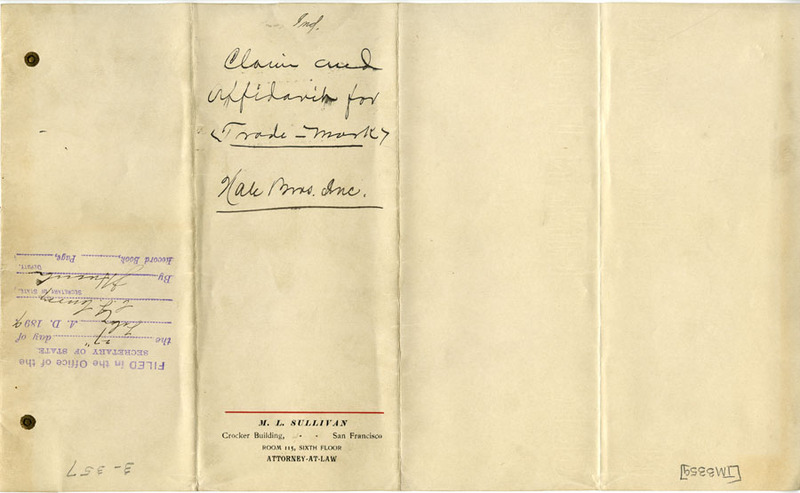 Ind.
Claim and
Affidavit for
<Trade-Mark>
Hale Bros. Inc.
M. L. SULLIVAN
Crocker Building, - - San Francisco
ROOM 115, SIXTH FLOOR
ATTORNEY-AT-LAW
FILED in the Office of the
SECRETARY OF STATE
the 27" day of
July A. D. 1899
SECRETARY OF STATE.
By
DEPUTY.
Record Book, Page,
3-357
[TM3359]